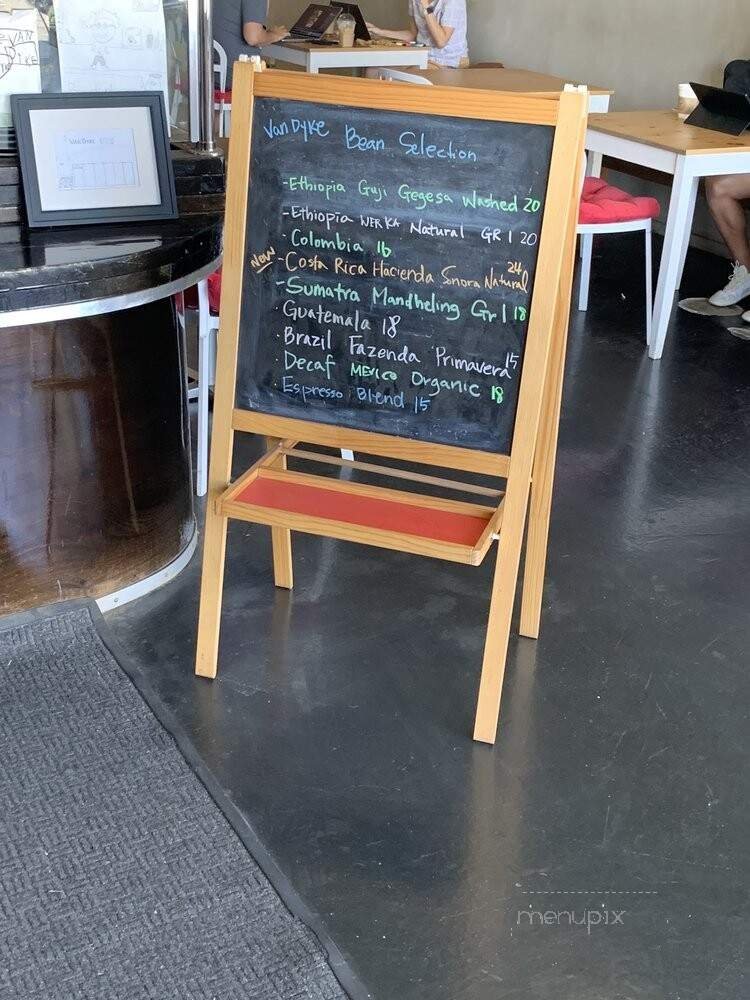 VanDyke Bean Selection
-Ethiopia Guji Gegesa Washed 20
-Ethiopia WERKA Natural GR 1 20
·Colombia 16
NEW -Costa Rica Hacienda Sonora Natural 24
-Sumatra Mandheling Gr 1 18
·Guatemala 18
·Brazil Fazenda Primavera 15
·Decaf MEXICO Organic 18
·Espresso Blend 15
menupix